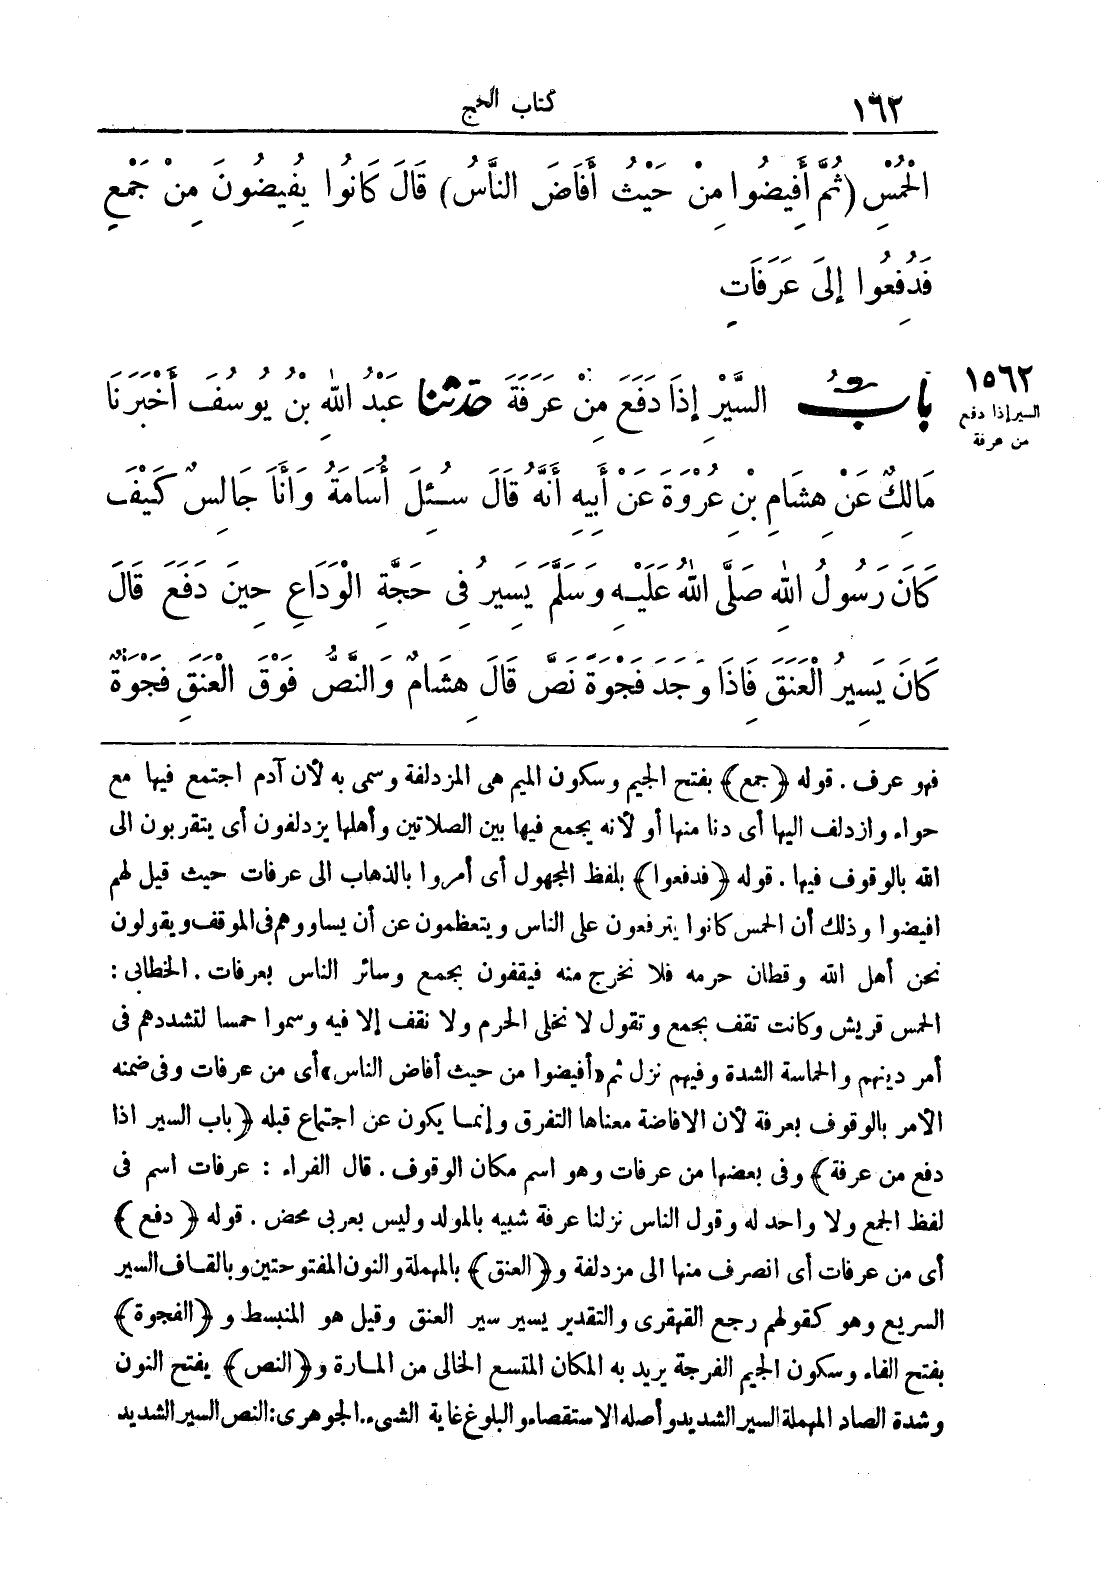 ١٦٢ كتاب الحج
الْحُمْسِ (ثُمَّ أَفِيضُوا مِنْ حَيْثُ أَفَاضَ النَّاسُ) قَالَ كَانُوا يُفِيضُونَ مِنْ جَمْعٍ
فَدُفِعُوا إِلَى عَرَفَاتٍ
١٥٦٢
السير إذا دفع
من عرفة
بابُ السَّيْرِ إِذَا دَفَعَ مِنْ عَرَفَةَ حدثنا عَبْدُ اللهِ بْنُ يُوسُفَ أَخْبَرَنَا
مَالِكٌ عَنْ هِشَامِ بْنِ عُرْوَةَ عَنْ أَبِيهِ أَنَّهُ قَالَ سُئِلَ أُسَامَةُ وَأَنَا جَالِسٌ كَيْفَ
كَانَ رَسُولُ اللهِ صَلَّى اللهُ عَلَيْهِ وَسَلَّمَ يَسِيرُ فِى حَجَّةِ الْوَدَاعِ حِينَ دَفَعَ قَالَ
كَانَ يَسِيرُ الْعَنَقَ فَاِذَا وَجَدَ فَجْوَةً نَصَّ قَالَ هِشَامٌ وَالنَّصُّ فَوْقَ الْعَنَقِ فَجْوَةٌ
فهو عرف . قوله ﴿جمع﴾ بفتح الجيم وسكون الميم هى المزدلفة وسمى به لأن آدم اجتمع فيها مع
حواء وازدلف اليها أى دنا منها أو لأنه يجمع فيها بين الصلاتين وأهلها يزدلفون أى يتقربون الى
الله بالوقوف فيها . قوله ﴿فدفعوا﴾ بلفظ المجهول أى أمروا بالذهاب الى عرفات حيث قيل لهم
افيضوا وذلك أن الحمس كانوا يترفعون على الناس ويتعظمون عن أن يساووهم فى الموقف ويقولون
نحن أهل الله وقطان حرمه فلا نخرج منه فيقفون بجمع وسائر الناس بعرفات . الخطابى :
الحمس قريش وكانت تقف بجمع وتقول لا نخلى الحرم ولا نقف إلا فيه وسموا حمسا لتشددهم فى
أمر دينهم والحماسة الشدة وفيهم نزل ثم «أفيضوا من حيث أفاض الناس» أى من عرفات وفى ضمنه
الأمر بالوقوف بعرفة لأن الافاضة معناها التفرق وإنما يكون عن اجتماع قبله ﴿باب السير اذا
دفع من عرفة﴾ وفى بعضها من عرفات وهو اسم مكان الوقوف . قال الفراء : عرفات اسم فى
لفظ الجمع ولا واحد له وقول الناس نزلنا عرفة شبيه بالمولد وليس بعربى محض . قوله ﴿دفع﴾
أى من عرفات أى انصرف منها الى مزدلفة و﴿العنق﴾ بالمهملة والنون المفتوحتين وبالقاف السير
السريع وهو كقولهم رجع القهقرى والتقدير يسير سير العنق وقيل هو المنبسط و﴿الفجوة﴾
بفتح الفاء وسكون الجيم الفرجة يريد به المكان المتسع الخالى من المارة و﴿النص﴾ بفتح النون
وشدة الصاد المهملة السير الشديد وأصله الاستقصاء والبلوغ غاية الشىء . الجوهرى : النص السير الشديد